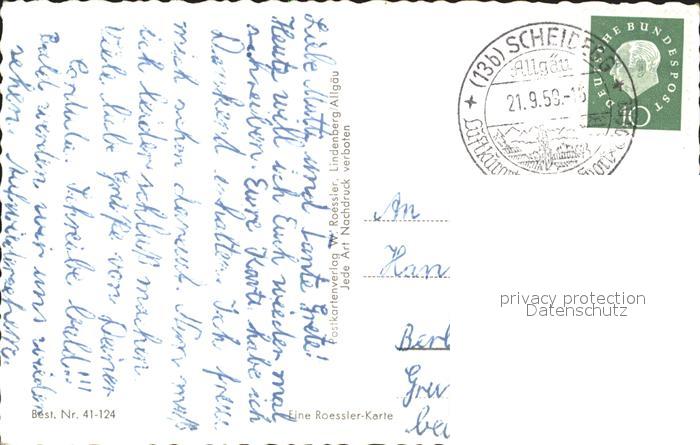 Liebe Mutti und Tante Grete!
Heute will ich Euch wieder mal
schreiben. Eure Karte habe ich
Dankend erhalten. Ich freue
mich schon darauf. Nun muß
ich leider schluß machen.
Viele liebe Grüße von Deiner
Schreibe bald!!!
Bald werden wir uns wieder
sehen
Postkartenverlag W. Roessler, Lindenberg/Allgäu
Jede Art Nachdruck verboten
Best. Nr. 41-124
Eine Roessler-Karte
(13b) SCHEIDEGG
Allgäu
21.9.59.-16
DEUTSCHE BUNDESPOST
10
An
Han
Berl
privacy protection
Datenschutz